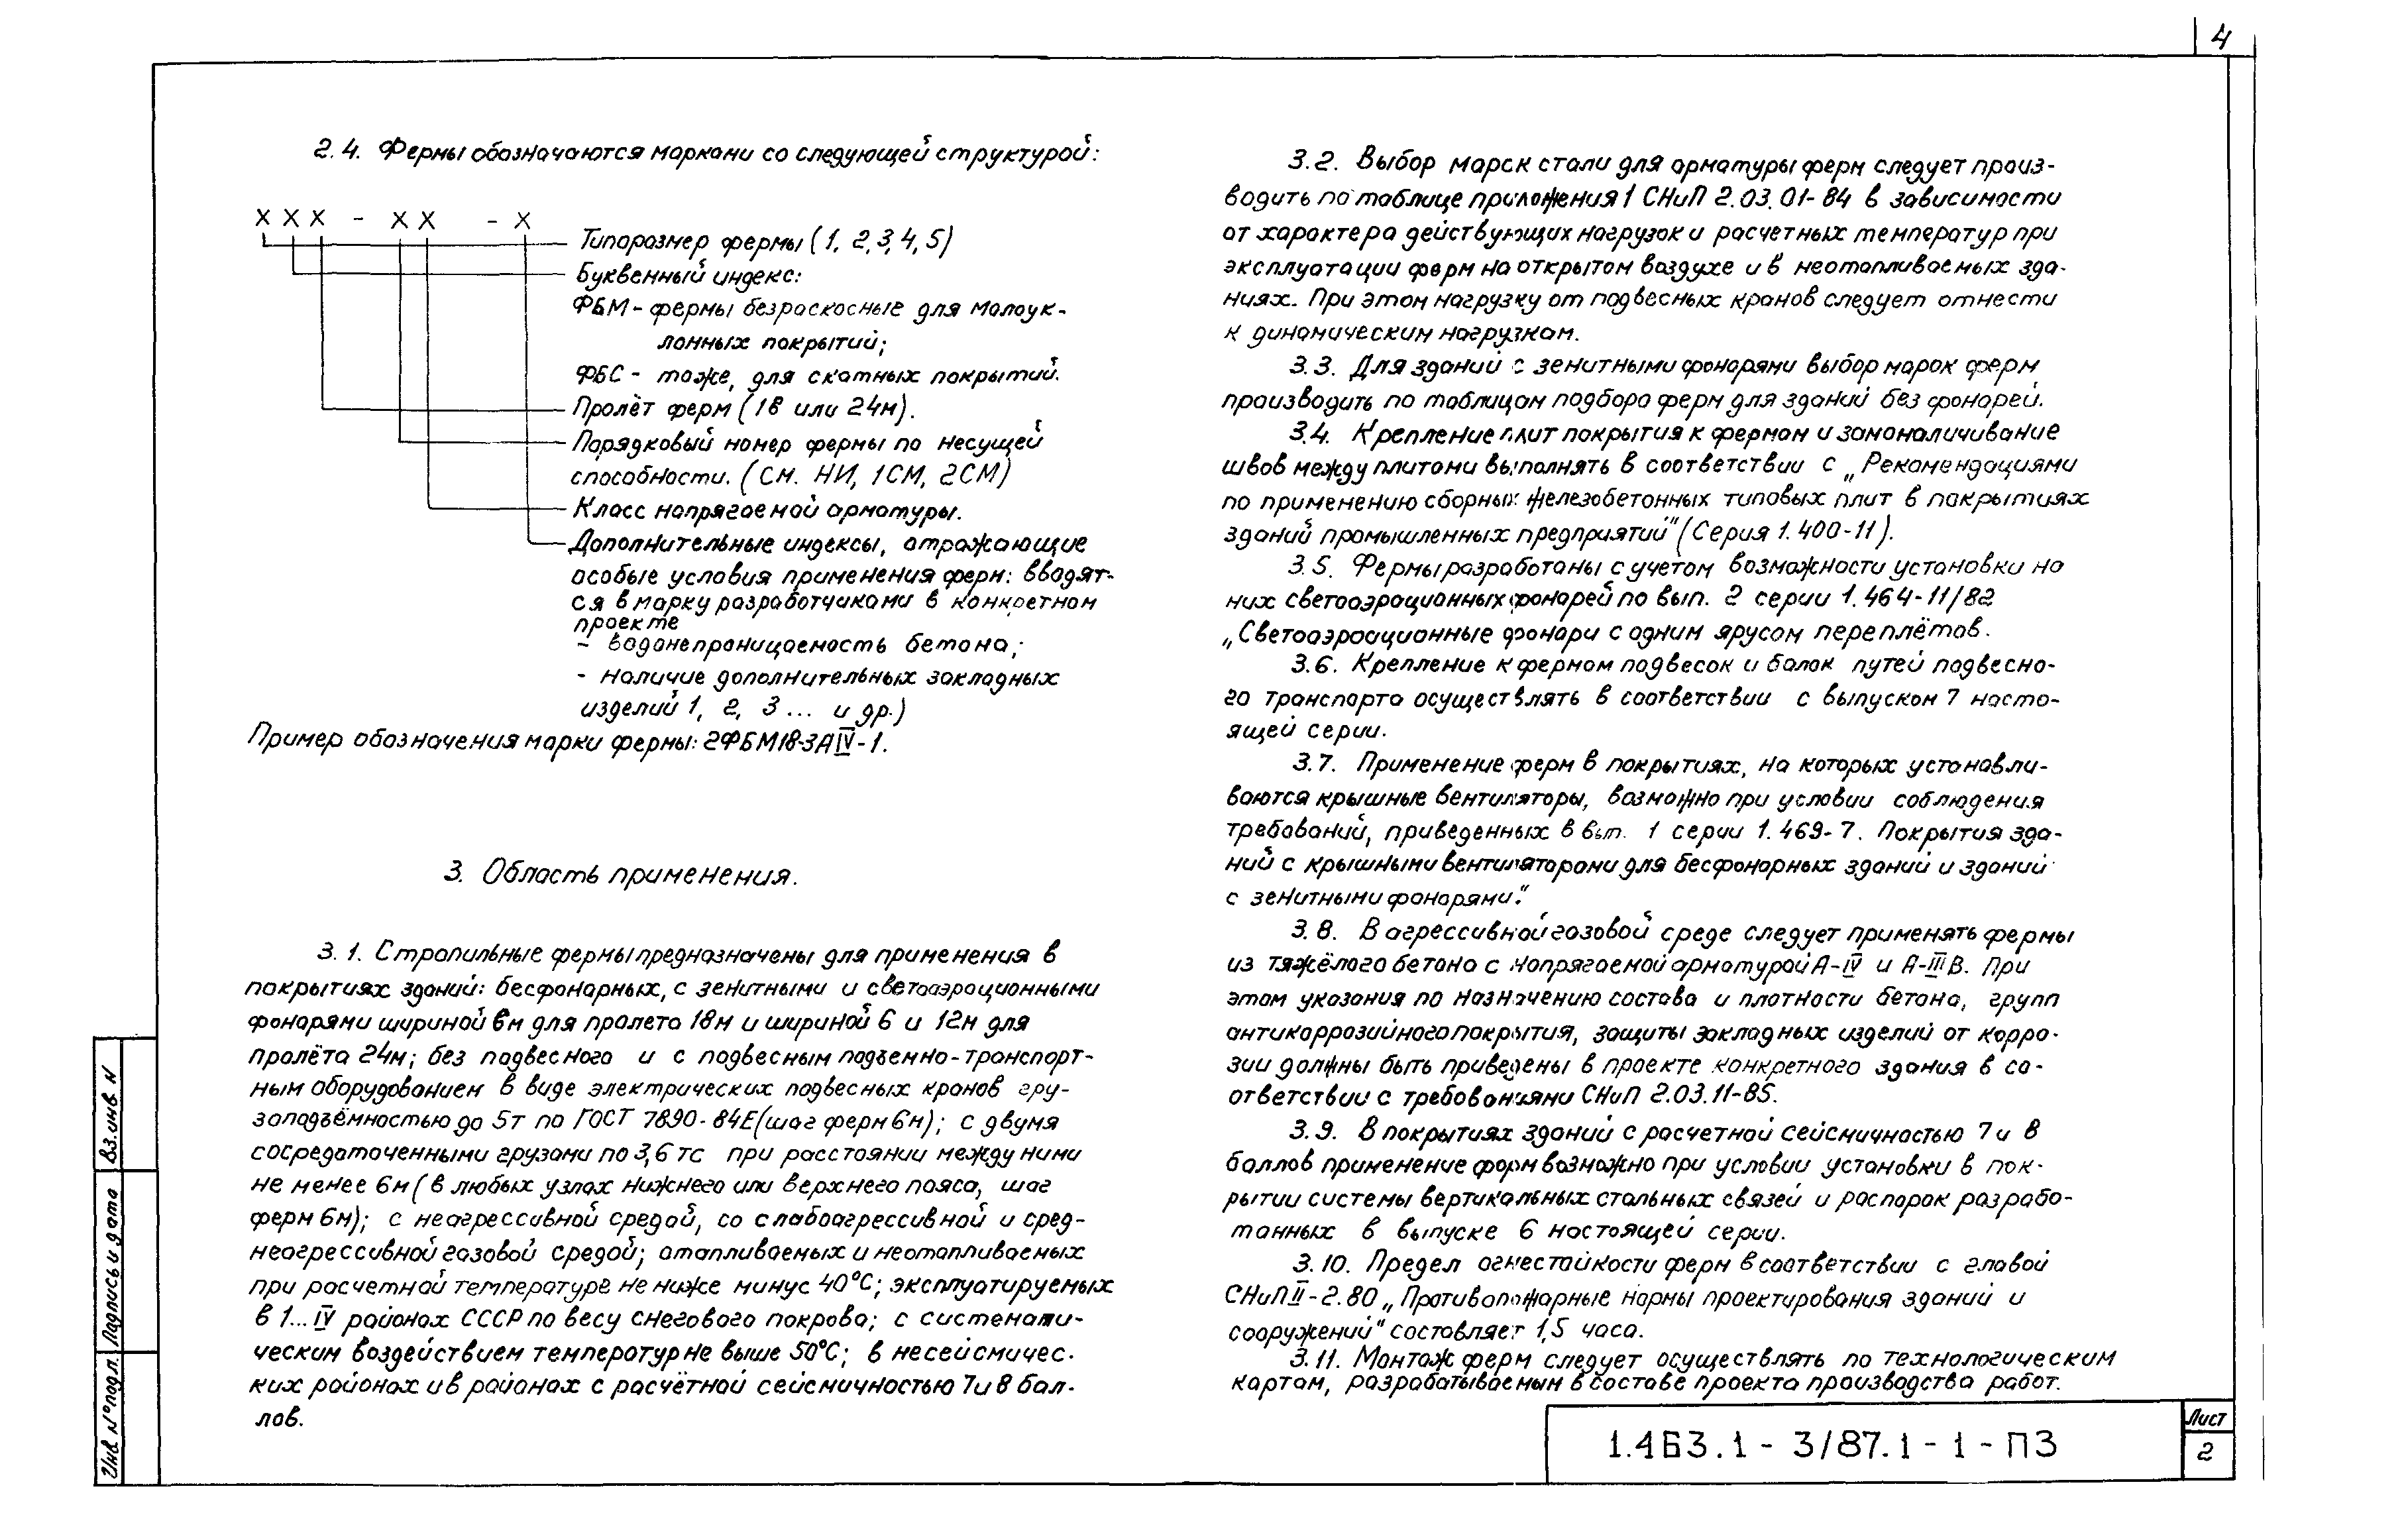 4
2.4. Фермы обозначаются марками со следующей структурой:
X X X - X X - X
Типоразмер фермы (1, 2, 3, 4, 5)
Буквенный индекс:
ФБМ - фермы безраскосные для малоук-
лонных покрытий;
ФБС - тоже, для скатных покрытий.
Пролёт ферм (18 или 24м).
Порядковый номер фермы по несущей
способности. (См. НИ, 1СМ, 2СМ)
Класс напрягаемой арматуры.
Дополнительные индексы, отражающие
особые условия применения ферм: вводят-
ся в марку разработчиками в конкретном
проекте
- водонепроницаемость бетона;
- наличие дополнительных закладных
изделий 1, 2, 3 ... и др.)
Пример обозначения марки фермы: 2ФБМ18-3АIV-1.
3. Область применения.
3.1. Стропильные фермы предназначены для применения в
покрытиях зданий: бесфонарных, с зенитными и светоаэрационными
фонарями шириной 6м для пролета 18м и шириной 6 и 12м для
пролёта 24м; без подвесного и с подвесным подъемно-транспорт-
ным оборудованием в виде электрических подвесных кранов гру-
зоподъёмностью до 5т по ГОСТ 7890-84Е (шаг ферм 6м); с двумя
сосредоточенными грузами по 3,6 тс при расстоянии между ними
не менее 6м (в любых узлах нижнего или верхнего пояса, шаг
ферм 6м); с неагрессивной средой, со слабоагрессивной и сред-
неагрессивной газовой средой; отапливаемых и неотапливаемых
при расчетной температуре не ниже минус 40°С; эксплуатируемых
в 1...IV районах СССР по весу снегового покрова; с системати-
ческим воздействием температур не выше 50°С; в несейсмичес-
ких районах и в районах с расчётной сейсмичностью 7 и 8 бал-
лов.
3.2. Выбор марок стали для арматуры ферм следует произ-
водить по таблице приложения 1 СНиП 2.03.01-84 в зависимости
от характера действующих нагрузок и расчетных температур при
эксплуатации ферм на открытом воздухе и в неотапливаемых зда-
ниях. При этом нагрузку от подвесных кранов следует отнести
к динамическим нагрузкам.
3.3. Для зданий с зенитными фонарями выбор марок ферм
производить по таблицам подбора ферм для зданий без фонарей.
3.4. Крепление плит покрытия к фермам и замоноличивание
швов между плитами выполнять в соответствии с „Рекомендациями
по применению сборных железобетонных типовых плит в покрытиях
зданий промышленных предприятий" (Серия 1.400-11).
3.5. Фермы разработаны с учетом возможности установки на
них светоаэрационных фонарей по вып. 2 серии 1.464-11/82
„Светоаэрационные фонари с одним ярусом переплётов.
3.6. Крепление к фермам подвесок и балок путей подвесно-
го транспорта осуществлять в соответствии с выпуском 7 насто-
ящей серии.
3.7. Применение ферм в покрытиях, на которых устанавли-
ваются крышные вентиляторы, возможно при условии соблюдения
требований, приведенных в вып. 1 серии 1.469-7. Покрытия зда-
ний с крышными вентиляторами для бесфонарных зданий и зданий
с зенитными фонарями."
3.8. В агрессивной газовой среде следует применять фермы
из тяжёлого бетона с напрягаемой арматурой А-IV и А-IIIВ. При
этом указания по назначению состава и плотности бетона, групп
антикоррозийного покрытия, защиты закладных изделий от корро-
зии должны быть приведены в проекте конкретного здания в со-
ответствии с требованиями СНиП 2.03.11-85.
3.9. В покрытиях зданий с расчетной сейсмичностью 7 и 8
баллов применение ферм возможно при условии установки в пок-
рытии системы вертикальных стальных связей и распорок разрабо-
танных в выпуске 6 настоящей серии.
3.10. Предел огнестойкости ферм в соответствии с главой
СНиП II-2.80 „Противопожарные нормы проектирования зданий и
сооружений" составляет 1,5 часа.
3.11. Монтаж ферм следует осуществлять по технологическим
картам, разрабатываемым в составе проекта производства работ.
Инв N°подл.
Подпись и дата
Вз.инв N
1.463.1 - 3/87.1 - 1 - ПЗ
Лист
2